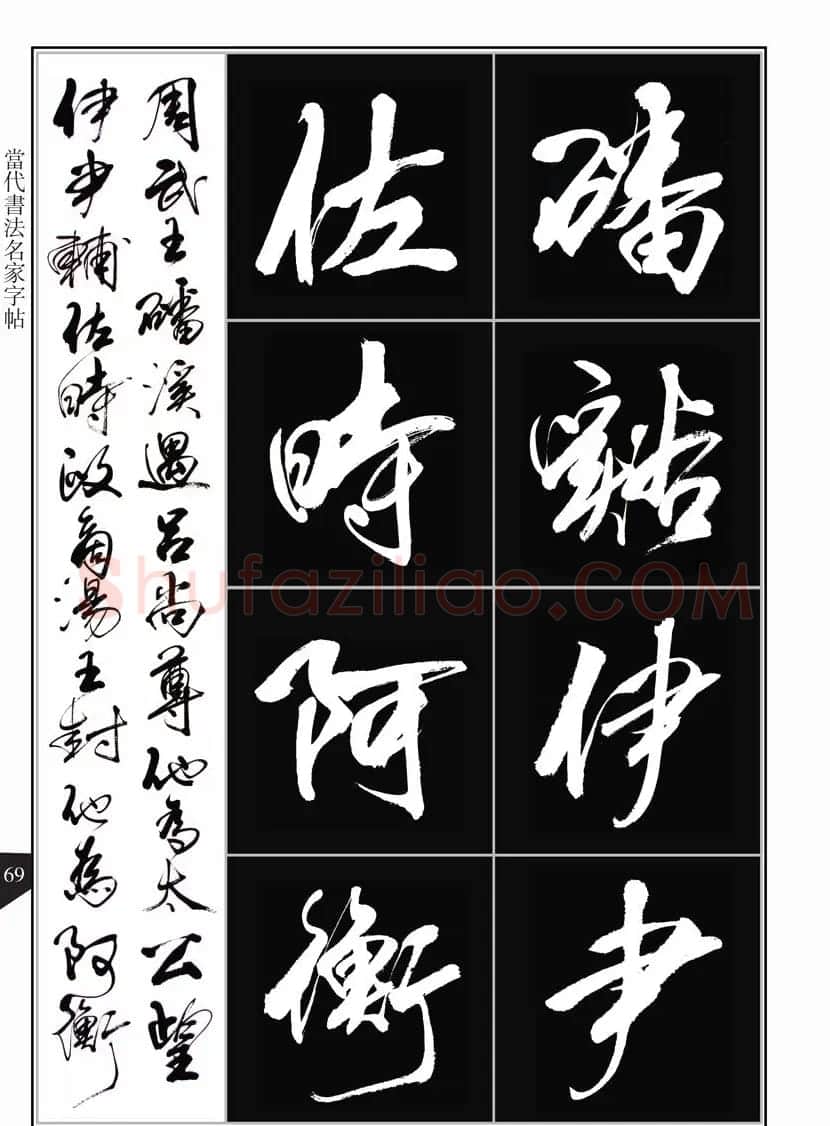 磻谿伊尹
佐時阿衡
周武王磻溪遇呂尚尊他為太公望
伊尹輔佐時政商湯王封他為阿衡
當代書法名家字帖
69
Shufaziliao.COM